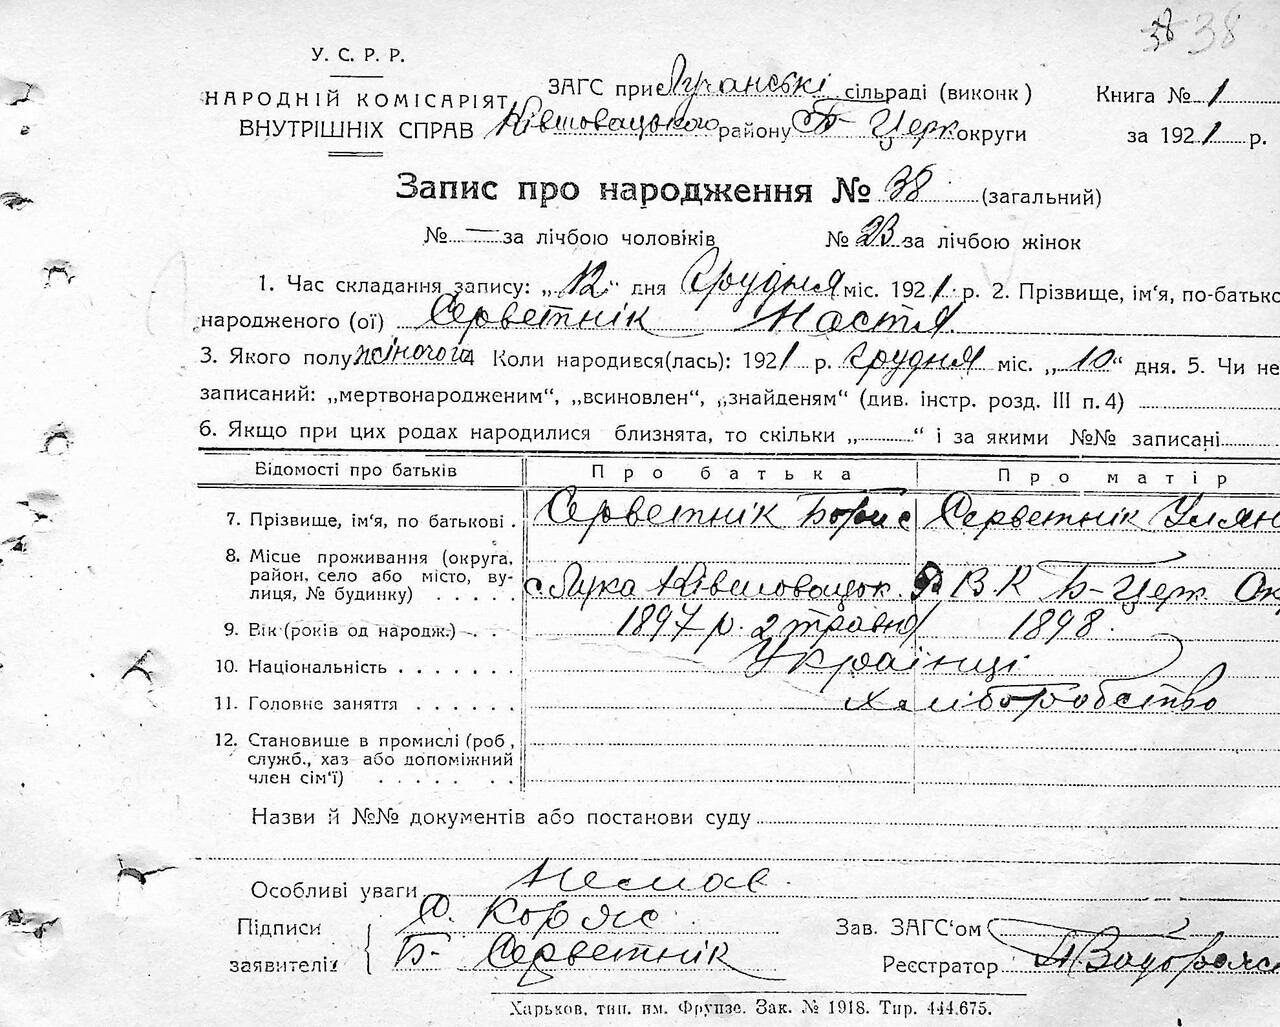 38 38
У. С. Р. Р.
НАРОДНІЙ КОМІСАРІЯТ
ВНУТРІШНІХ СПРАВ
ЗАГС при Лучанські сільраді (виконк)
Ківшовацького району Б-Церк округи
Книга № 1
за 1921 р.
Запис про народження № 38 (загальний)
№ — за лічбою чоловіків № 23 за лічбою жінок
1. Час складання запису: „12“ дня Грудня міс. 1921 р. 2. Прізвище, ім'я, по-батько
народженого (ої) Серветнік Настя
3. Якого полу жіночого 4 Коли народився(лась): 1921 р. Грудня міс. „10“ дня. 5. Чи не
записаний: „мертвонародженим“, „всиновлен“, „знайденям“ (див. інстр. розд. III п. 4)
6. Якщо при цих родах народилися близнята, то скільки „ “ і за якими №№ записані
Відомості про батьків Про батька Про матір
7. Прізвище, ім'я, по батькові . Серветнік Борис Серветнік Улян
8. Місце проживання (округа,
район, село або місто, ву-
лиця, № будинку) . . . . . с Лука Ківшовацьк. В. К Б-Церк Ок
9. Вік (років од народж.) . . 1897 р. 2 травня 1898.
10. Національність . . . . . . . Українці
11. Головне заняття . . . . . . Хліборобство
12. Становище в промислі (роб,
служб., хаз або допоміжний
член сім'ї) . . . . . . .
Назви й №№ документів або постанови суду
Особливі уваги немає.
Підписи
заявителів
С. Коряс
Б- Серветнік
Зав. ЗАГС'ом
Реєстратор
Харьков, тип. им. Фрунзе. Зак. № 1918. Тир. 444.675.